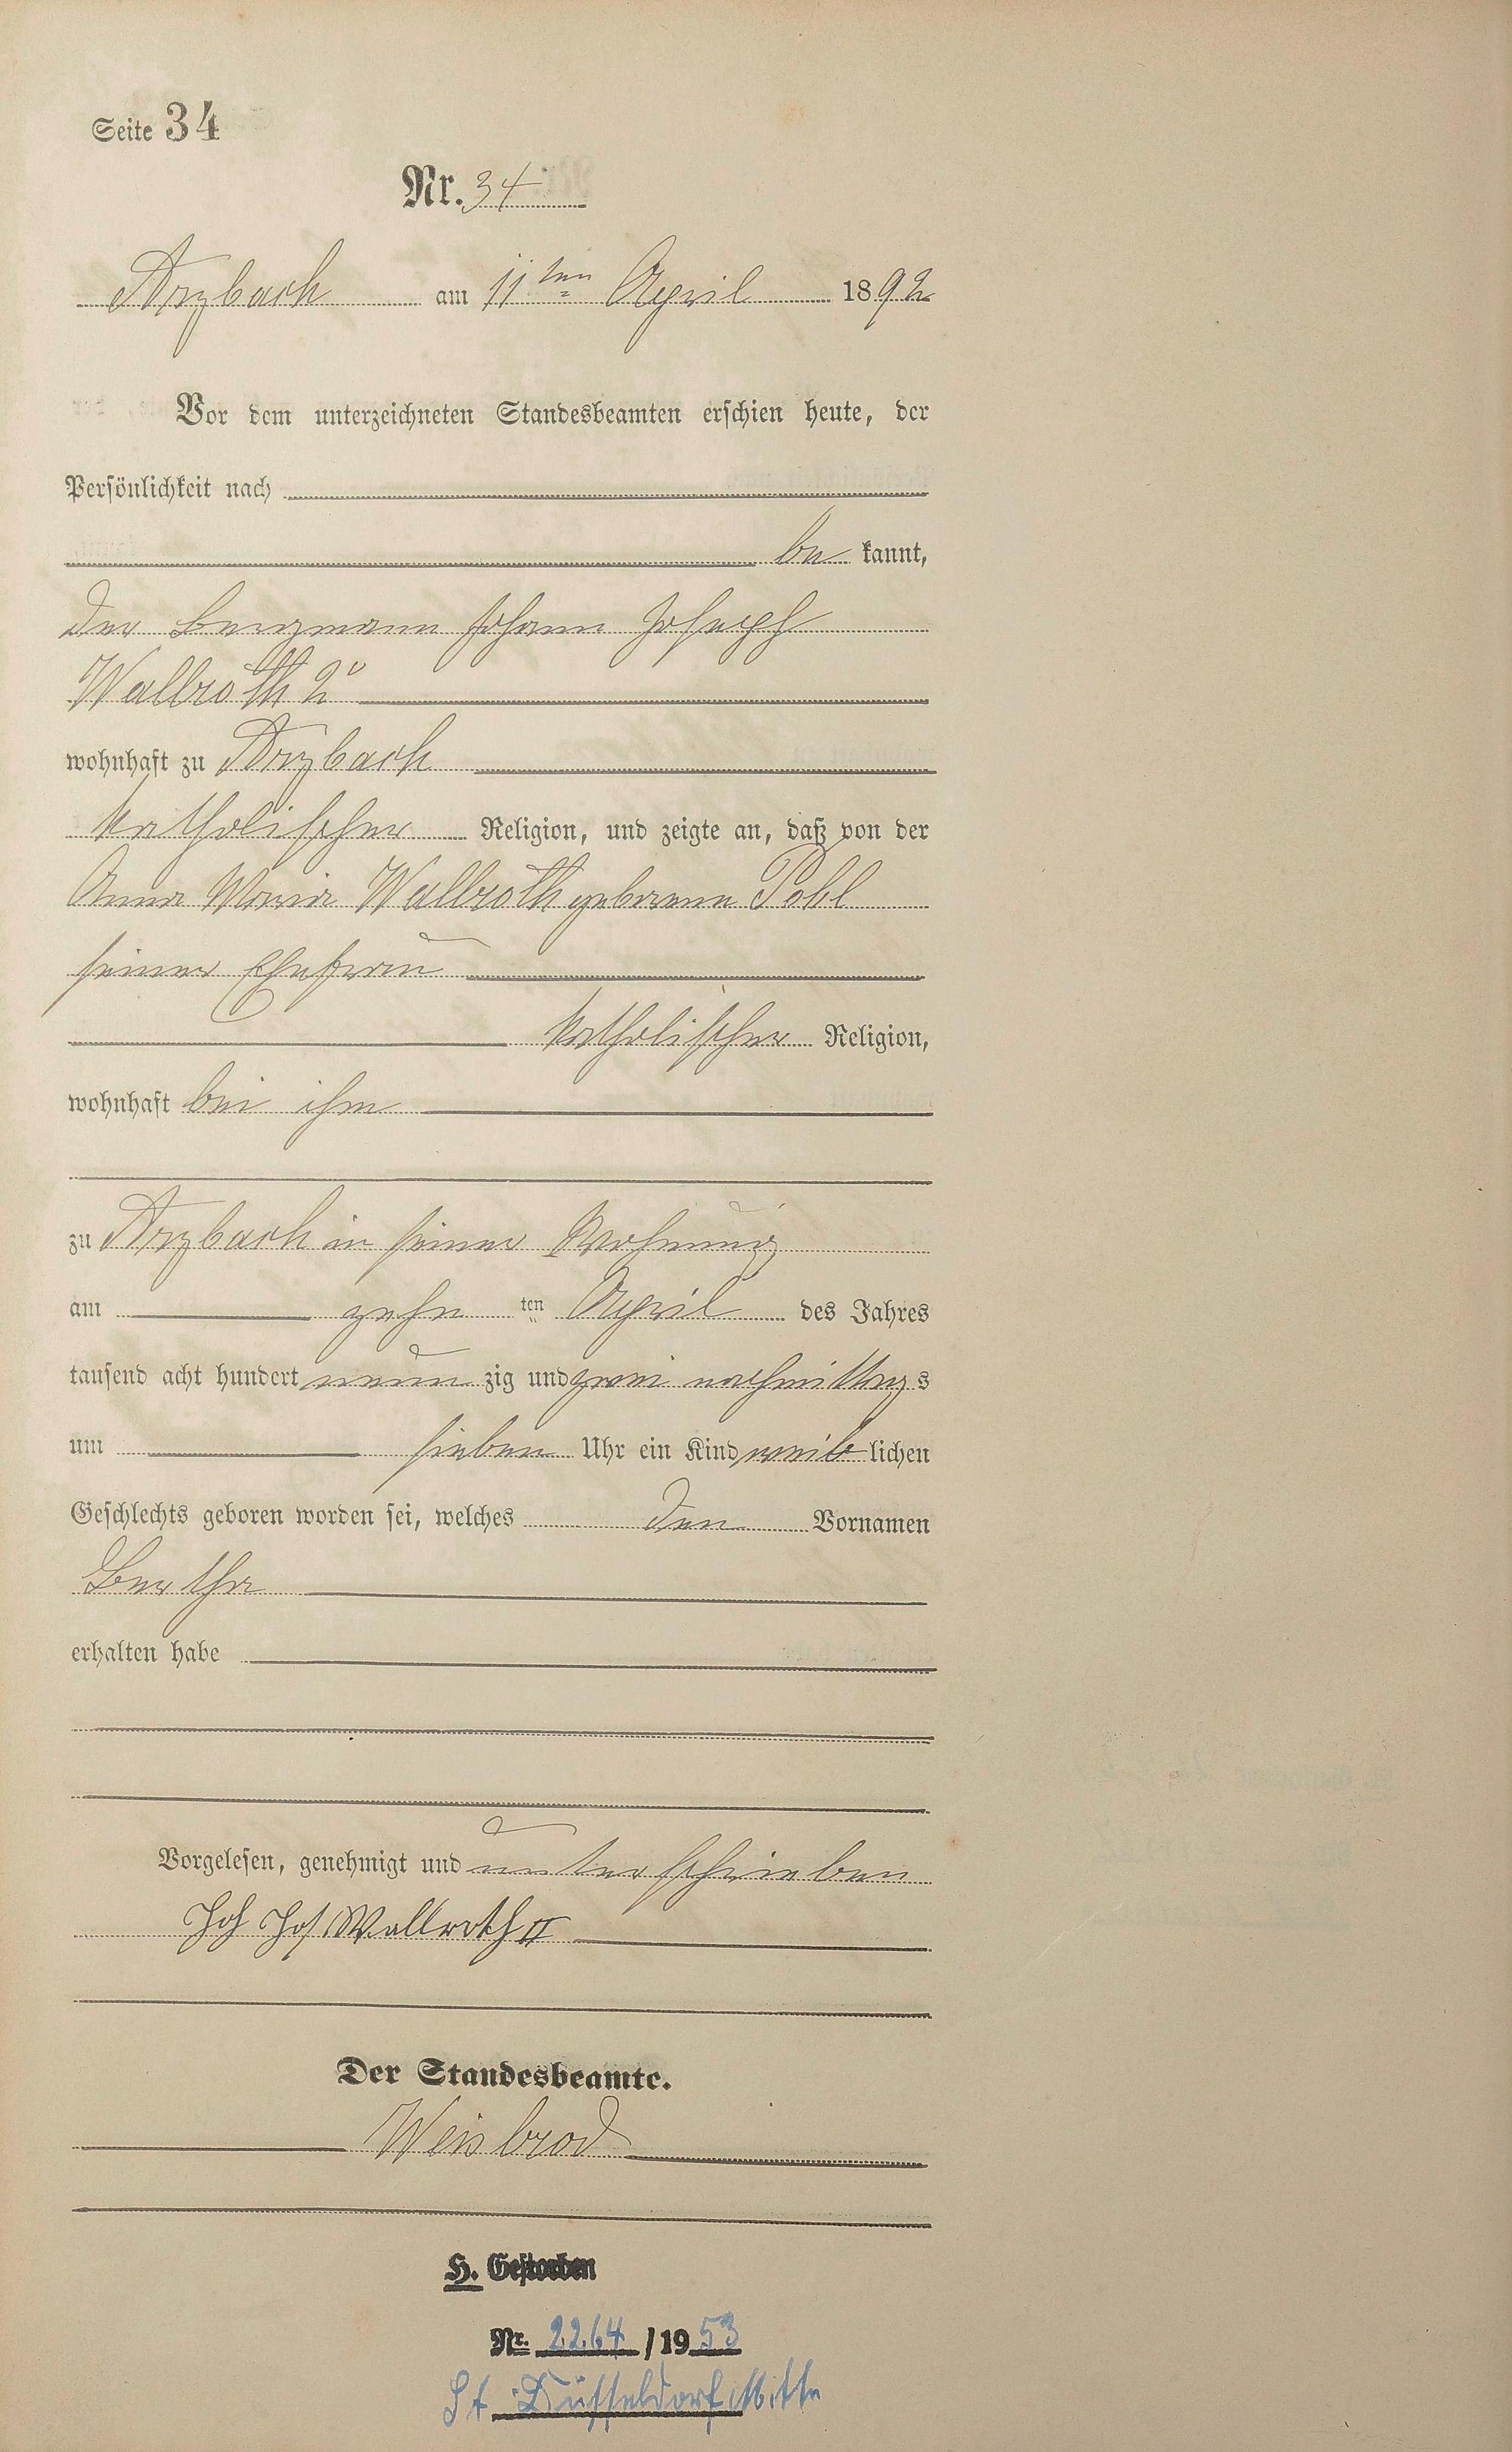 Seite 34
Nr. 34
Arzbach am 11ten April 1892
Vor dem unterzeichneten Standesbeamten erschien heute, der
Persönlichkeit nach
be kannt,
der Bergmann Johann Joseph
Wallroth 2r
wohnhaft zu Arzbach
katholischer Religion, und zeigte an, daß von der
Anna Maria Wallroth geborene Pohl
seiner Ehefrau
katholischer Religion,
wohnhaft bei ihm
zu Arzbach in seiner Wohnung
am zehn ten April des Jahres
tausend acht hundert neun zig und zwei nachmittags
um sieben Uhr ein Kind weib lichen
Geschlechts geboren worden sei, welches den Vornamen
Bertha
erhalten habe
Vorgelesen, genehmigt und unterschrieben
Joh Jos Wallroth II
Der Standesbeamte.
Weisbrod
H. Gestorben
Nr. 2264 / 1953
St. Düsseldorf Mitte